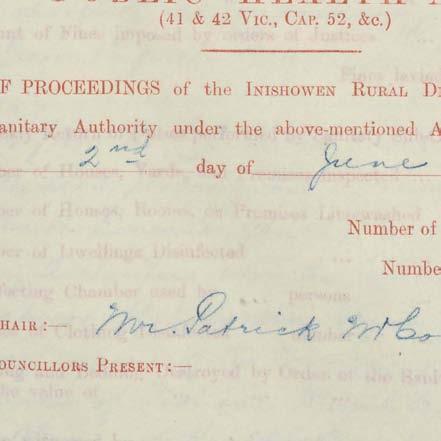 (41 & 42 Vic., Cap. 52, &c.)
F PROCEEDINGS of the Inishowen Rural Di
anitary Authority under the above-mentioned A
2nd day of June
Number of
Numbe
hair:— Mr. Patrick McCo
ouncillors Present:—